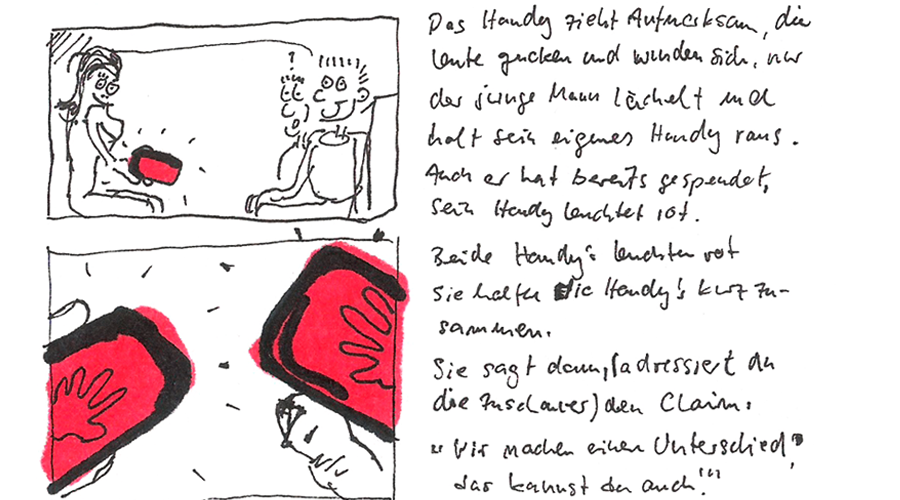 Das Handy zieht Aufmerksam, die
Leute gucken und wundern sich, nur
der junge Mann lächelt und
holt sein eigenes Handy raus.
Auch er hat bereits gespendet,
sein Handy leuchtet rot.
Beide Handy's leuchten rot
Sie halten die Handy's kurz zu-
sammen.
Sie sagt dann, (adressiert an
die Zuschauer) den Claim:
"Wir machen einen Unterschied,
das kannst du auch!"